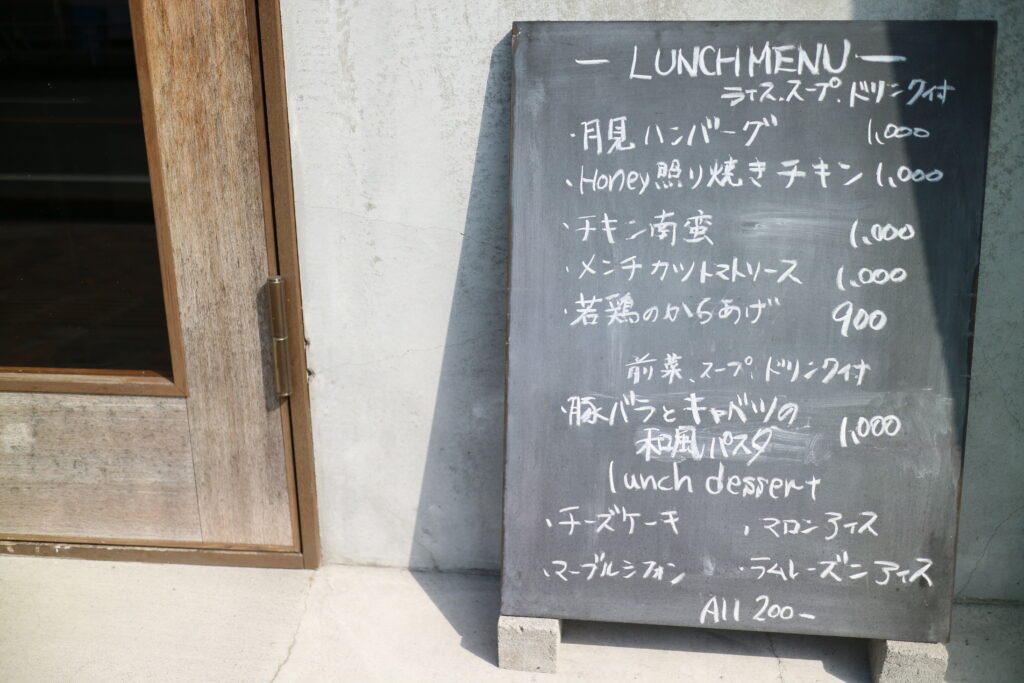 — LUNCH MENU —
ライス.スープ.ドリンク付
・月見ハンバーグ 1,000
・Honey照り焼きチキン 1,000
・チキン南蛮 1,000
・メンチカツトマトソース 1,000
・若鶏のからあげ 900
前菜、スープ.ドリンク付
・豚バラとキャベツの 1,000
和風パスタ
lunch dessert
・チーズケーキ ・マロンアイス
・マーブルシフォン ・ラムレーズンアイス
All 200−